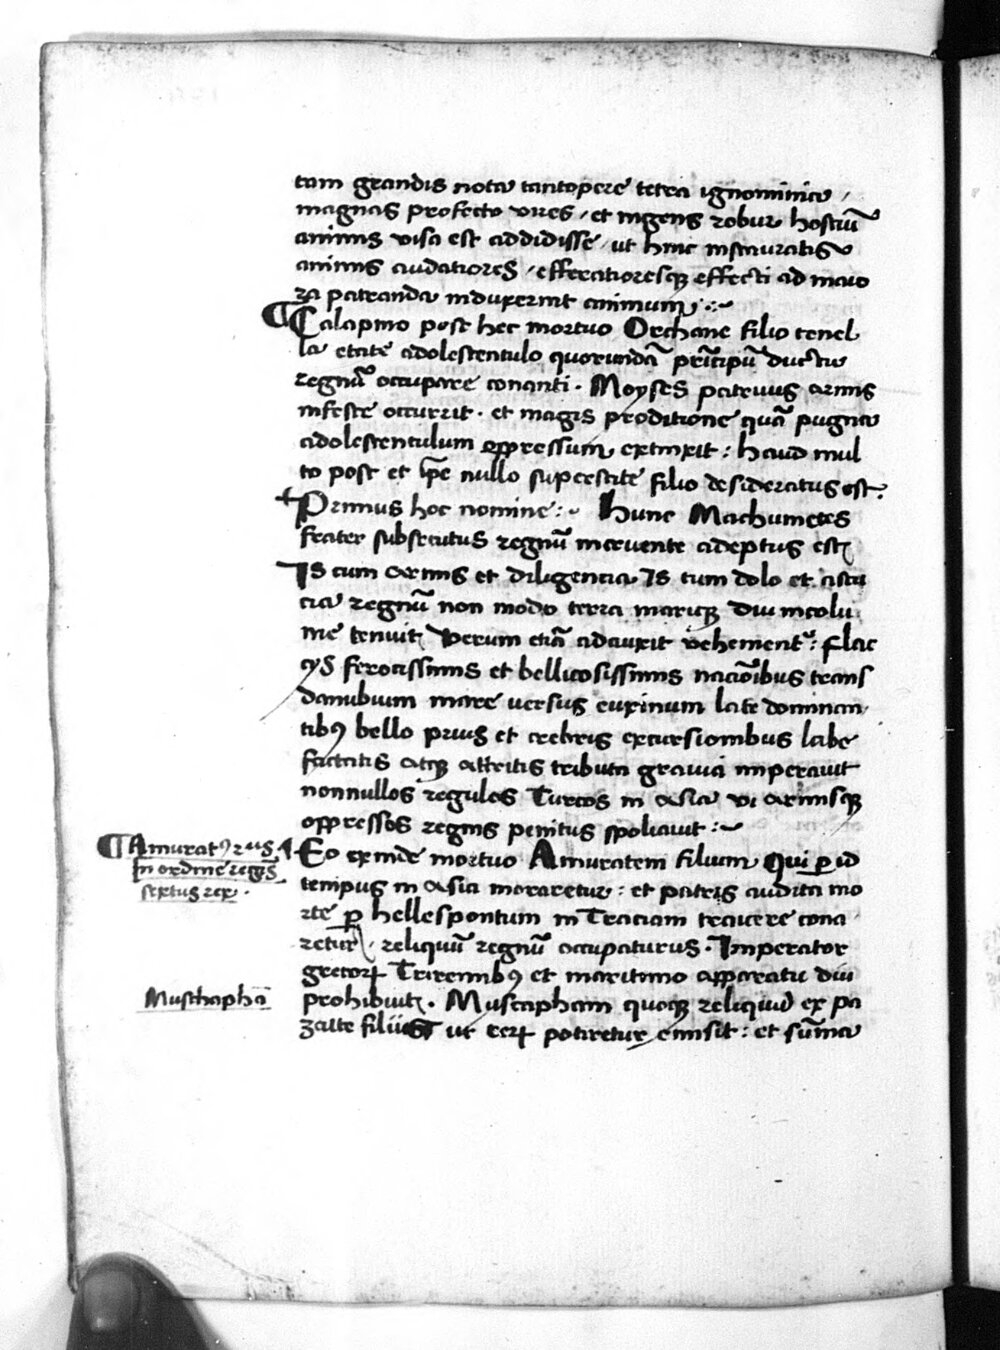 tam grandis nota tantopere tetra ignominia /
magnas profecto vires / et ingens robur hostiū
animis visa est addidisse / ut hinc instauratis
animis audatiores / efferatioresq̨ effecti ad maio
ra patranda induxerint animum :~
¶ Calapino post hec mortuo Orchane filio tenel
la etate adolescentulo quorundā prīcipū ductu
regnū occupare conanti · Moyses patruus armis
infeste occurrit · et magis proditione quā pugna
adolescentulum oppressum extinxit : haud mul
to post et ip̄e nullo superstite filio desideratus est.
Primus hoc nomine :~ Hunc Machumetes
frater subsecutus regnū meruente adeptus est
Is cum armis et diligencia Is tum dolo et astu
cia regnū non modo terra mariq̨ diu incolu
me tenuit Verum etiā adauxit vehement᷑ : flac
cꝰ ferocissimis et bellicosissimis nacōibus trans
danubium mare versus euxinum late dominan
tibꝰ bello prius et crebris excursionibus labe
factatis atq̨ attritis tributa gravia imperavit
nonnullos regulos Turcos in asia vi armisq̨
oppressos regnis penitus spoliavit :~
¶ Amuratꝰ 2us
In ordine regū
sextus rex ·
Eo exinde mortuo Amuratem filium Qui ꝑ id
tempus in asia moraretur : et patris audita mo
rte ꝑ hellespontum in Traciam traiicere cona
retur / reliquū regnū occupaturus · Imperator
grecoꝝ Triremibꝰ et maritimo apparatu diu
Musthaphā
prohibuit · Mustapham quoq̨ reliquū ex pa
zaite filiis ut eoꝝ potiretur emisit : et sūma